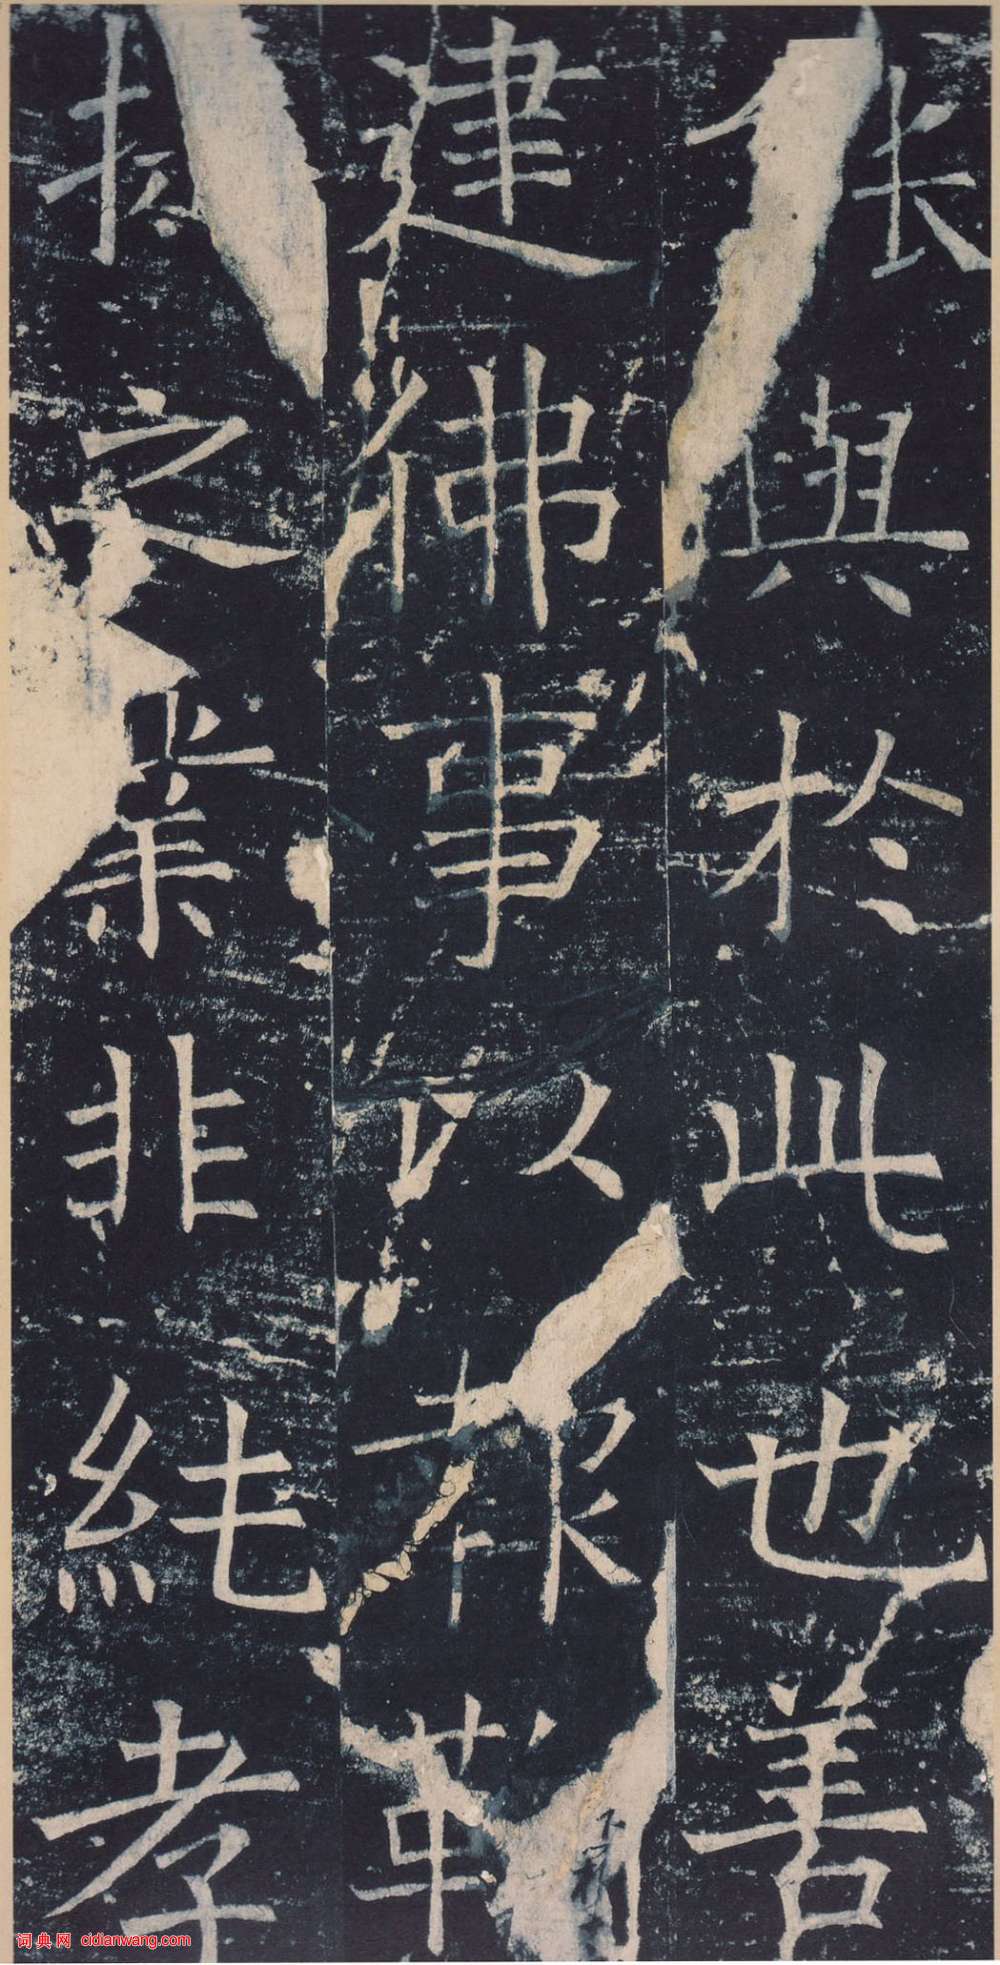 與於此也善
建佛事以報
之業非純孝
词典网 cidianwang.com